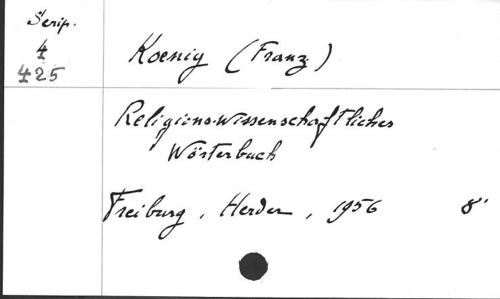 Scrip.
4
425
Koenig (Franz)
Religionswissenschaftliches
Wörterbuch
Freiburg, Herder, 1956 8°